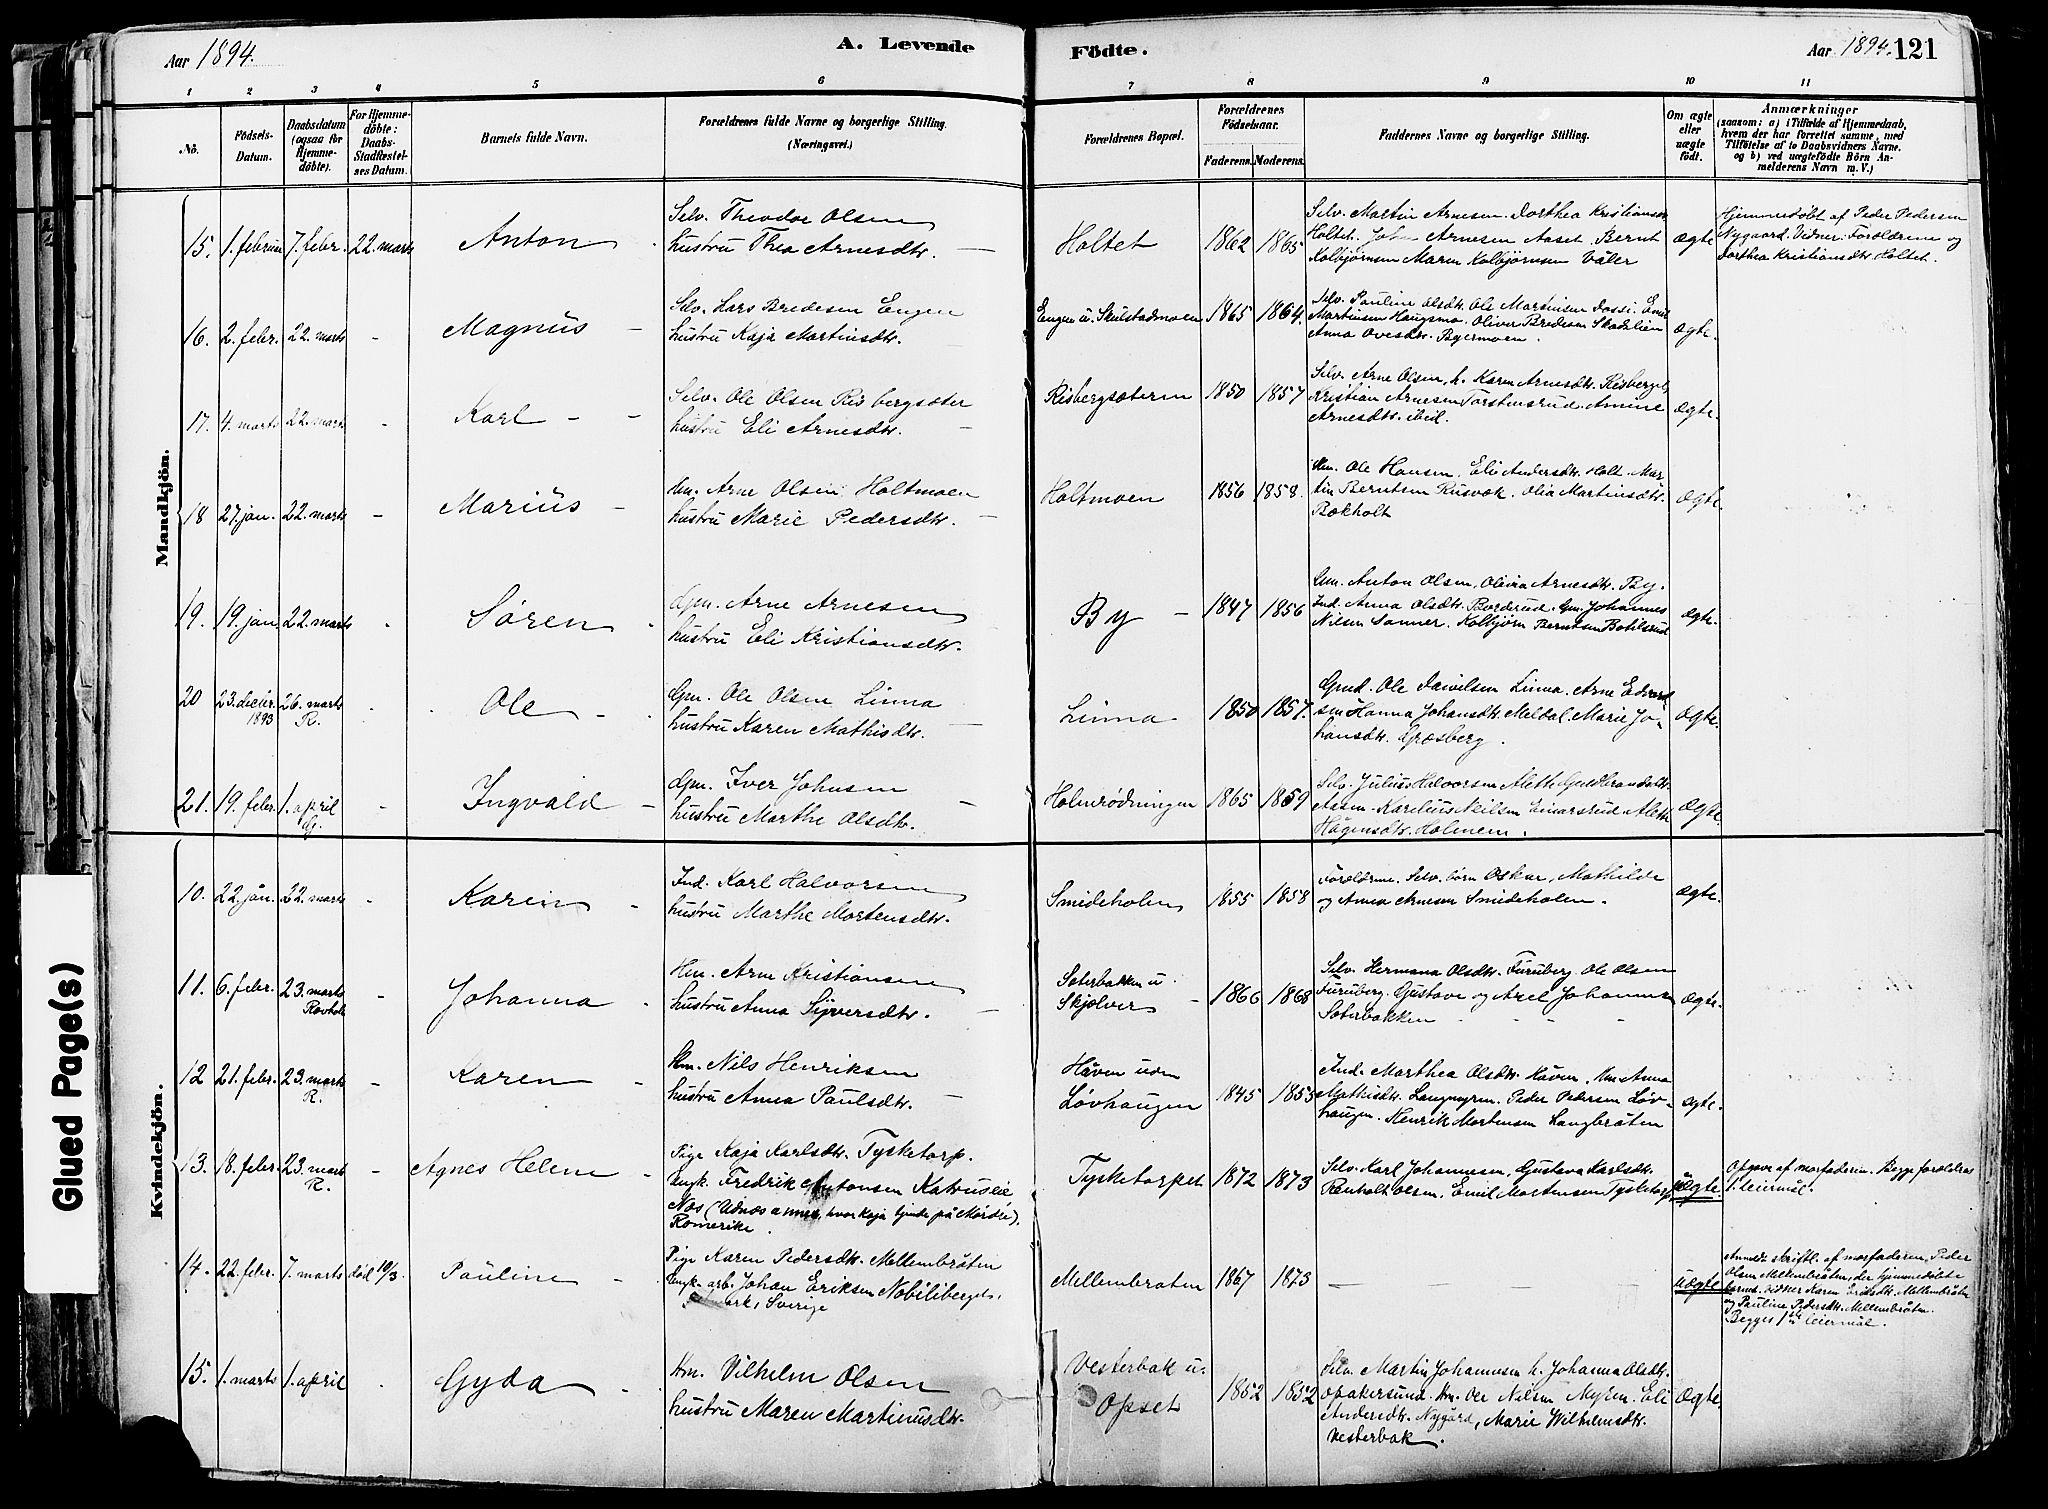 Aar 1894.
A. Levende
Födte.
Aar 1894. 121
1 2 3 4 5 6 7 8 9 10 11
No.
Födsels-
Datum.
Daabsdatum
(ogsaa for
Hjemme-
döbte).
For Hjemme-
döbte:
Daabs-
Stadfæstel-
ses Datum.
Barnets fulde Navn.
Forældrenes fulde Navne og borgerlige Stilling.
(Næringsvei.)
Forældrenes Bopæl.
Forældrenes
Födselsaar.
Faderens. Moderens.
Faddernes Navne og borgerlige Stilling.
Om ægte
eller
uægte
födt.
Anmærkninger
(saasom: a) i Tilfælde af Hjemmedaab,
hvem der har forrettet samme, med
Tilföielse af to Daabsvidners Navne.
og b) ved uægtefödte Börn An-
melderens Navn m. V.)
Mandkjön.
15. 1. februar 7. febr. 22. marts Anton
Selv. Theodor Olsen
hustru Thea Arnesdtr.
Holtet 1862 1865
Selv. Martin Arnesen. Dorthea Kristiansdtr.
Holtet. Arnesen Aaset. Bernt
Kolbjørnsen Maren Kolbjørnsen Våler
ægte
Hjemmedøbt af Peder Pedersen
Nygaard. Vidner: Forældrene og
Dorthea Kristiansdtr. Holtet.
16. 2. febr. 22. marts - Magnus
Selv. Lars Bredesen Engen
hustru Kaja Martinsdtr.
Engen u. Skulstadmoen 1865 1864.
Selv. Pauline Olsdtr. Ole Martinsen Emil
Martinsen Haugsmo. Oliver Bredesen Skadelien
Anna Ovesdtr. Byermoen.
ægte.
17. 4. marts 22. marts - Karl
Selv. Ole Olsen Risbergsæter
hustru Eli Arnesdtr.
Risbergsæteren 1850 1857
Selv. Arne Olsen, h. Karen Arnesdtr. Risberget,
Kristian Arnesen Torstensrud. Amine
Arnesdtr. ibid.
ægte.
18 27. jan. 22. marts - Marius
Hm. Arne Olsen Holtmoen
hustru Marie Pedersdtr.
Holtmoen 1856 1858.
Hm. Ole Hansen. Eli Andersdtr. Holt. Mar-
tin Berntsen Rusvæk. Olia Martinsdtr.
Bækholt
ægte.
19. 19. jan. 22. marts - Søren
Gm. Arne Arnesen
hustru Eli Kristiansdtr.
By 1847 1856
Gm. Anton Olsen, Olivia Arnesdtr. By.
Ind. Anna Olsdtr. Borderud. Gm. Johannes
Nilsen Sanner. Kolbjørn Berntsen Botilsrud
ægte.
20 23. decbr. 1893 26. marts R. Ole
Gm. Ole Olsen Linna
hustru Karen Mathisdtr.
Linna 1850 1857.
Gmd. Ole Linna. Arne Edvard-
sen Hanna Johansdtr. Meldal. Marie Jo-
hansdtr. Græsberg.
ægte.
21. 19. febr. 1. april G. - Ingvald
Gm. Iver Johnsen
hustru Marthe Olsdtr.
Holmrødningen 1865 1859
Selv. Julius Halvorsen Aleth. Guldbrandsdtr.
Aasen. Karelius Neilsen Einarsrud. Aleth
Hågensdtr. Holmen.
ægte.
Kvindekjön.
10. 22. jan. 22. marts - Karin
Ind. Karl Halvorsen
hustru Marthe Mortensdtr.
Smideholen 1855 1858
Forældrene. Selv. børn Oskar, Mathilde
og Anna Arnesen Smideholen.
ægte.
11. 6. febr. 23. marts Ravholt - Johanna
Hm. Arne Kristiansen
hustru Anna Sjyversdtr.
Sæterbakken u.
Skjølver 1866 1868
Selv. Hermana Olsdtr. Furuberg. Ole Olsen
Furuberg. Gustave og Axel Johannesen
Sæterbakken
ægte.
12 21. febr. 23. marts R. - Karen
Hm. Nils Henriksen
hustru Anna Paulsdtr.
Håven uden
Løvhaugen 1845 1855
Ind. Marthea Olsdtr. Håven. Hm. Anna
Mathisdtr. Langmyren. Peder Pedersen Løv-
haugen. Henrik Mortensen Langbråten
ægte.
13. 18. febr. 23. marts R. - Agnes Helene
Pige Kaja Karlsdtr. Tysketorp.
Ungk. Fredrik Antonsen
Næs (Udnæs annex, hvor Kaja tjente på Mordre).
Romerike.
Tysketorpet 1872 1873
Selv. Karl Johannesen, Gustava Karlsdtr.
Renholt Olsen. Emil Mortensen Tysketorp
uægte
Opgave af morfaderen. Begge forældres
1. leiermål.
14. 22. febr. 7. marts død 10/3. Pauline
Pige Karen Pedersdtr. Mellembråten
Ungk. arb. Johan Eriksen Nobiliberget,
Sverige
Mellembraten 1867 1873
uægte
Anmeldt skriftl. af morfaderen, Peder
Olsen Mellembråten, der hjemmedøbte
barnet. Vidner Karen Mellembråten
og Pauline Pedersdtr. Mellembråten.
Begges 1ste leiermål.
15. 1. marts 1. april Gyda
Hm. Vilhelm Olsen
hustru Maren Martinusdtr.
Vesterbak u.
Opset 1852 1852
Selv. Martin Johannesen h. Johanna Olsdtr.
Opakersund. Hm. Nilsen Myren. Eli
Andersdtr. Nygård, Marie Wilhelmsdtr.
Vesterbak.
ægte.
Glued Page(s)